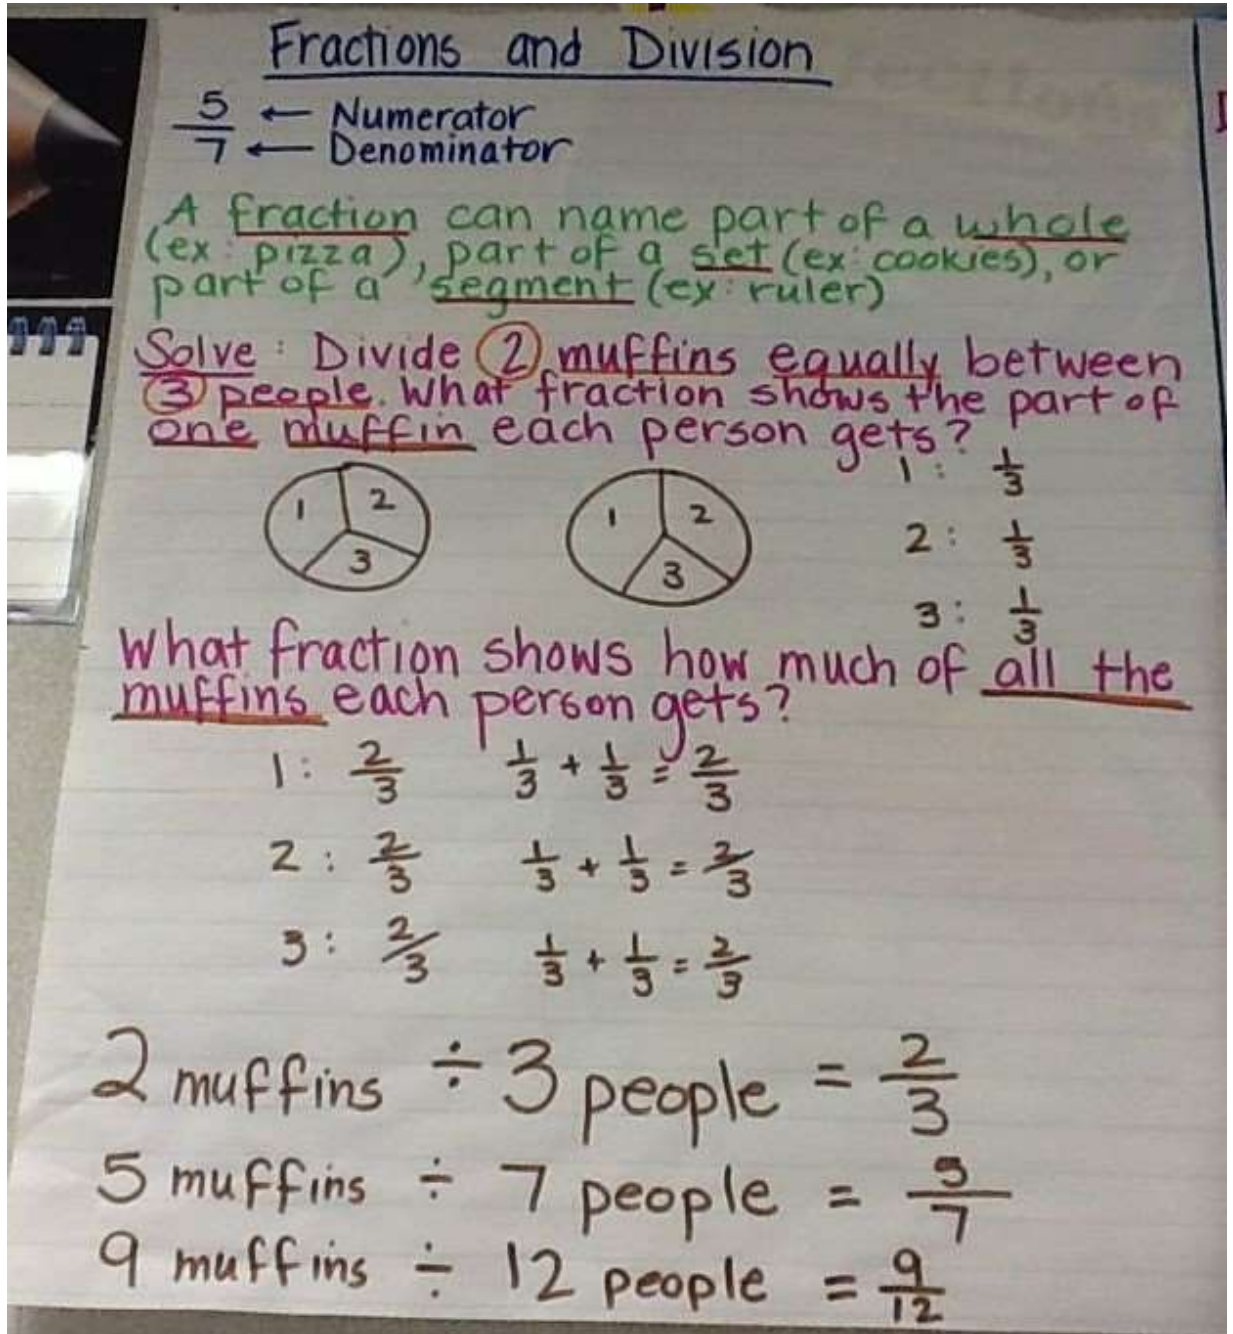 Fractions and Division
5 ← Numerator
7 ← Denominator
A fraction can name part of a whole
(ex: pizza), part of a set (ex: cookies), or
part of a segment (ex: ruler)
Solve: Divide 2 muffins equally between
3 people. What fraction shows the part of
one muffin each person gets?
1 2 3
1 2 3
1: 1/3
2: 1/3
3: 1/3
What fraction shows how much of all the
muffins each person gets?
1: 2/3 1/3 + 1/3 = 2/3
2: 2/3 1/3 + 1/3 = 2/3
3: 2/3 1/3 + 1/3 = 2/3
2 muffins ÷ 3 people = 2/3
5 muffins ÷ 7 people = 5/7
9 muffins ÷ 12 people = 9/12